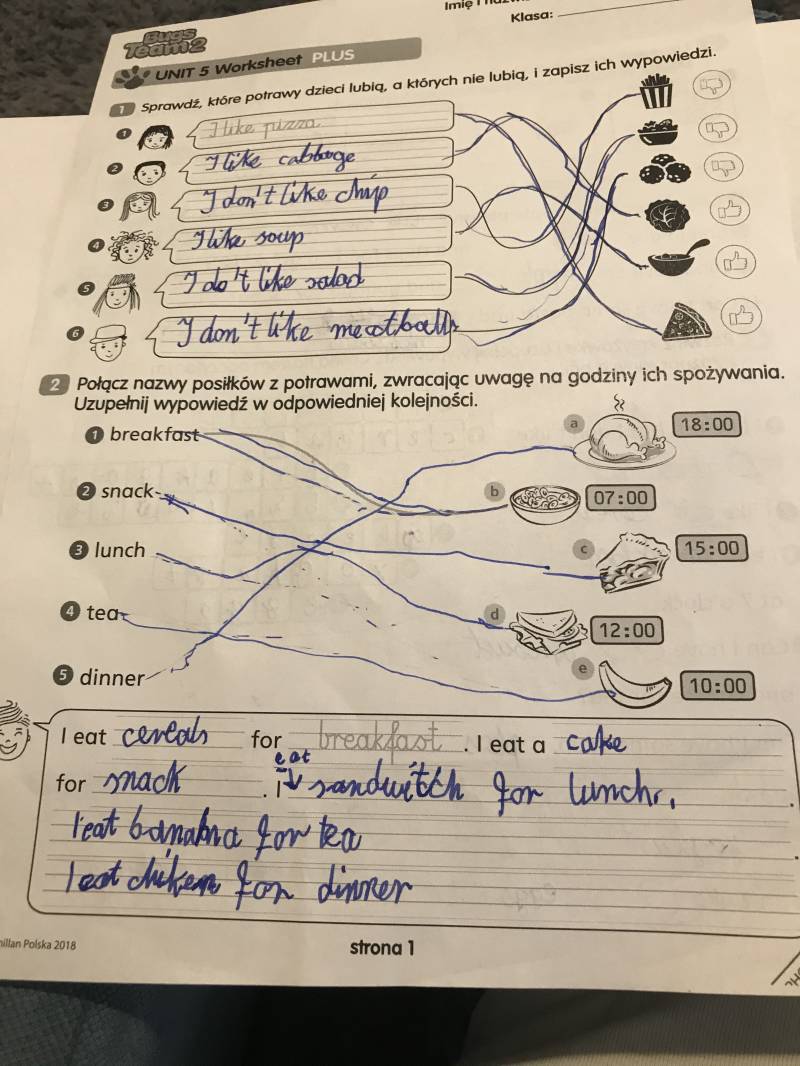 Imię i
Klasa:
Bugs
Team 2
UNIT 5 Worksheet PLUS
1 Sprawdź, które potrawy dzieci lubią, a których nie lubią, i zapisz ich wypowiedzi.
1 I like pizza
2 I like cabbage
3 I don't like chip
4 I like soup
5 I do't like salad
6 I don't like meatballs
2 Połącz nazwy posiłków z potrawami, zwracając uwagę na godziny ich spożywania.
Uzupełnij wypowiedź w odpowiedniej kolejności.
1 breakfast
a 18:00
2 snack
b 07:00
3 lunch
c 15:00
4 tea
d 12:00
5 dinner
e 10:00
I eat cereals for breakfast. I eat a cake
eat
for snack. I sandwitch for lunch.
I eat banana for tea
I eat chiken for dinner
millan Polska 2018
strona 1